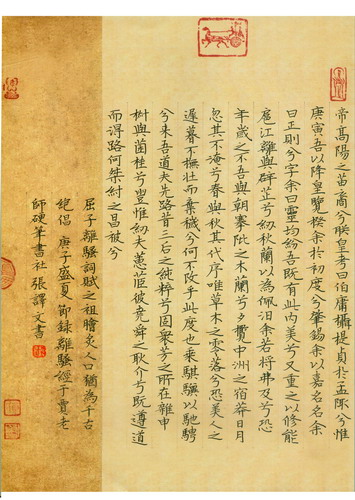 帝高陽之苗裔兮朕皇考曰伯庸攝提貞於孟陬兮惟
庚寅吾以降皇覽揆余於初度兮肇錫余以嘉名名余
曰正則兮字余曰靈均紛吾既有此內美兮又重之以修能
扈江離與群芷兮紉秋蘭以為佩汨余若將弗及兮恐
年歲之不吾與朝搴阰之木蘭兮夕攬中洲之宿莽日月
忽其不淹兮春與秋其代序唯草木之零落兮恐美人之
遲暮不撫壯而棄穢兮何不改乎此度也乘騏驥以馳騁
兮來吾道夫先路昔三后之純粹兮固眾芳之所在雜申
椒與菌桂兮豈惟紉夫蕙茝彼堯舜之耿介兮既遵道
而得路何桀紂之昌被兮
屈子離騷詞賦之祖膾炙人口猶為千古
絕倡 庚子盛夏節録離騷經于賈老
師硬筆書社 張譯文書